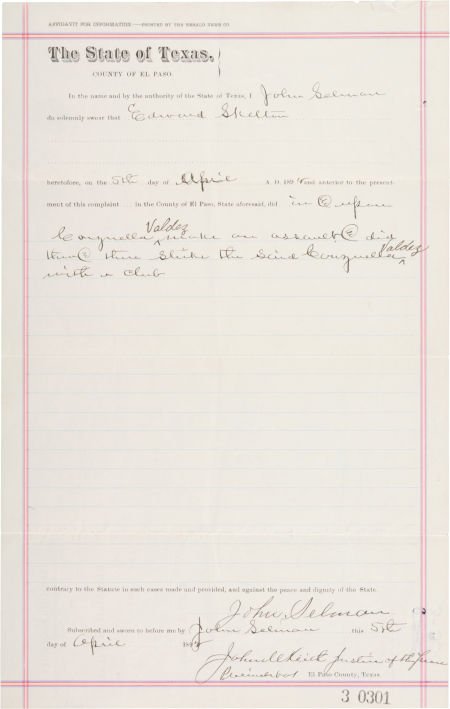 AFFIDAVIT FOR INFORMATION — PRINTED BY THE HERALD NEWS CO.
The State of Texas,
COUNTY OF EL PASO
In the name and by the authority of the State of Texas, I John Selman
do solemnly swear that Edward Skelton
heretofore, on the 5th day of April A. D. 189 and anterior to the present-
ment of this complaint in the County of El Paso, State aforesaid, did in & upon
Valdez
make an assault & did
Valdez
then & there strike the said
with a club
contrary to the Statute in such cases made and provided, and against the peace and dignity of the State.
John Selman
Subscribed and sworn to before me by John Selman this 5th
day of April 189
Justice of the Peace
El Paso County, Texas
3 0301